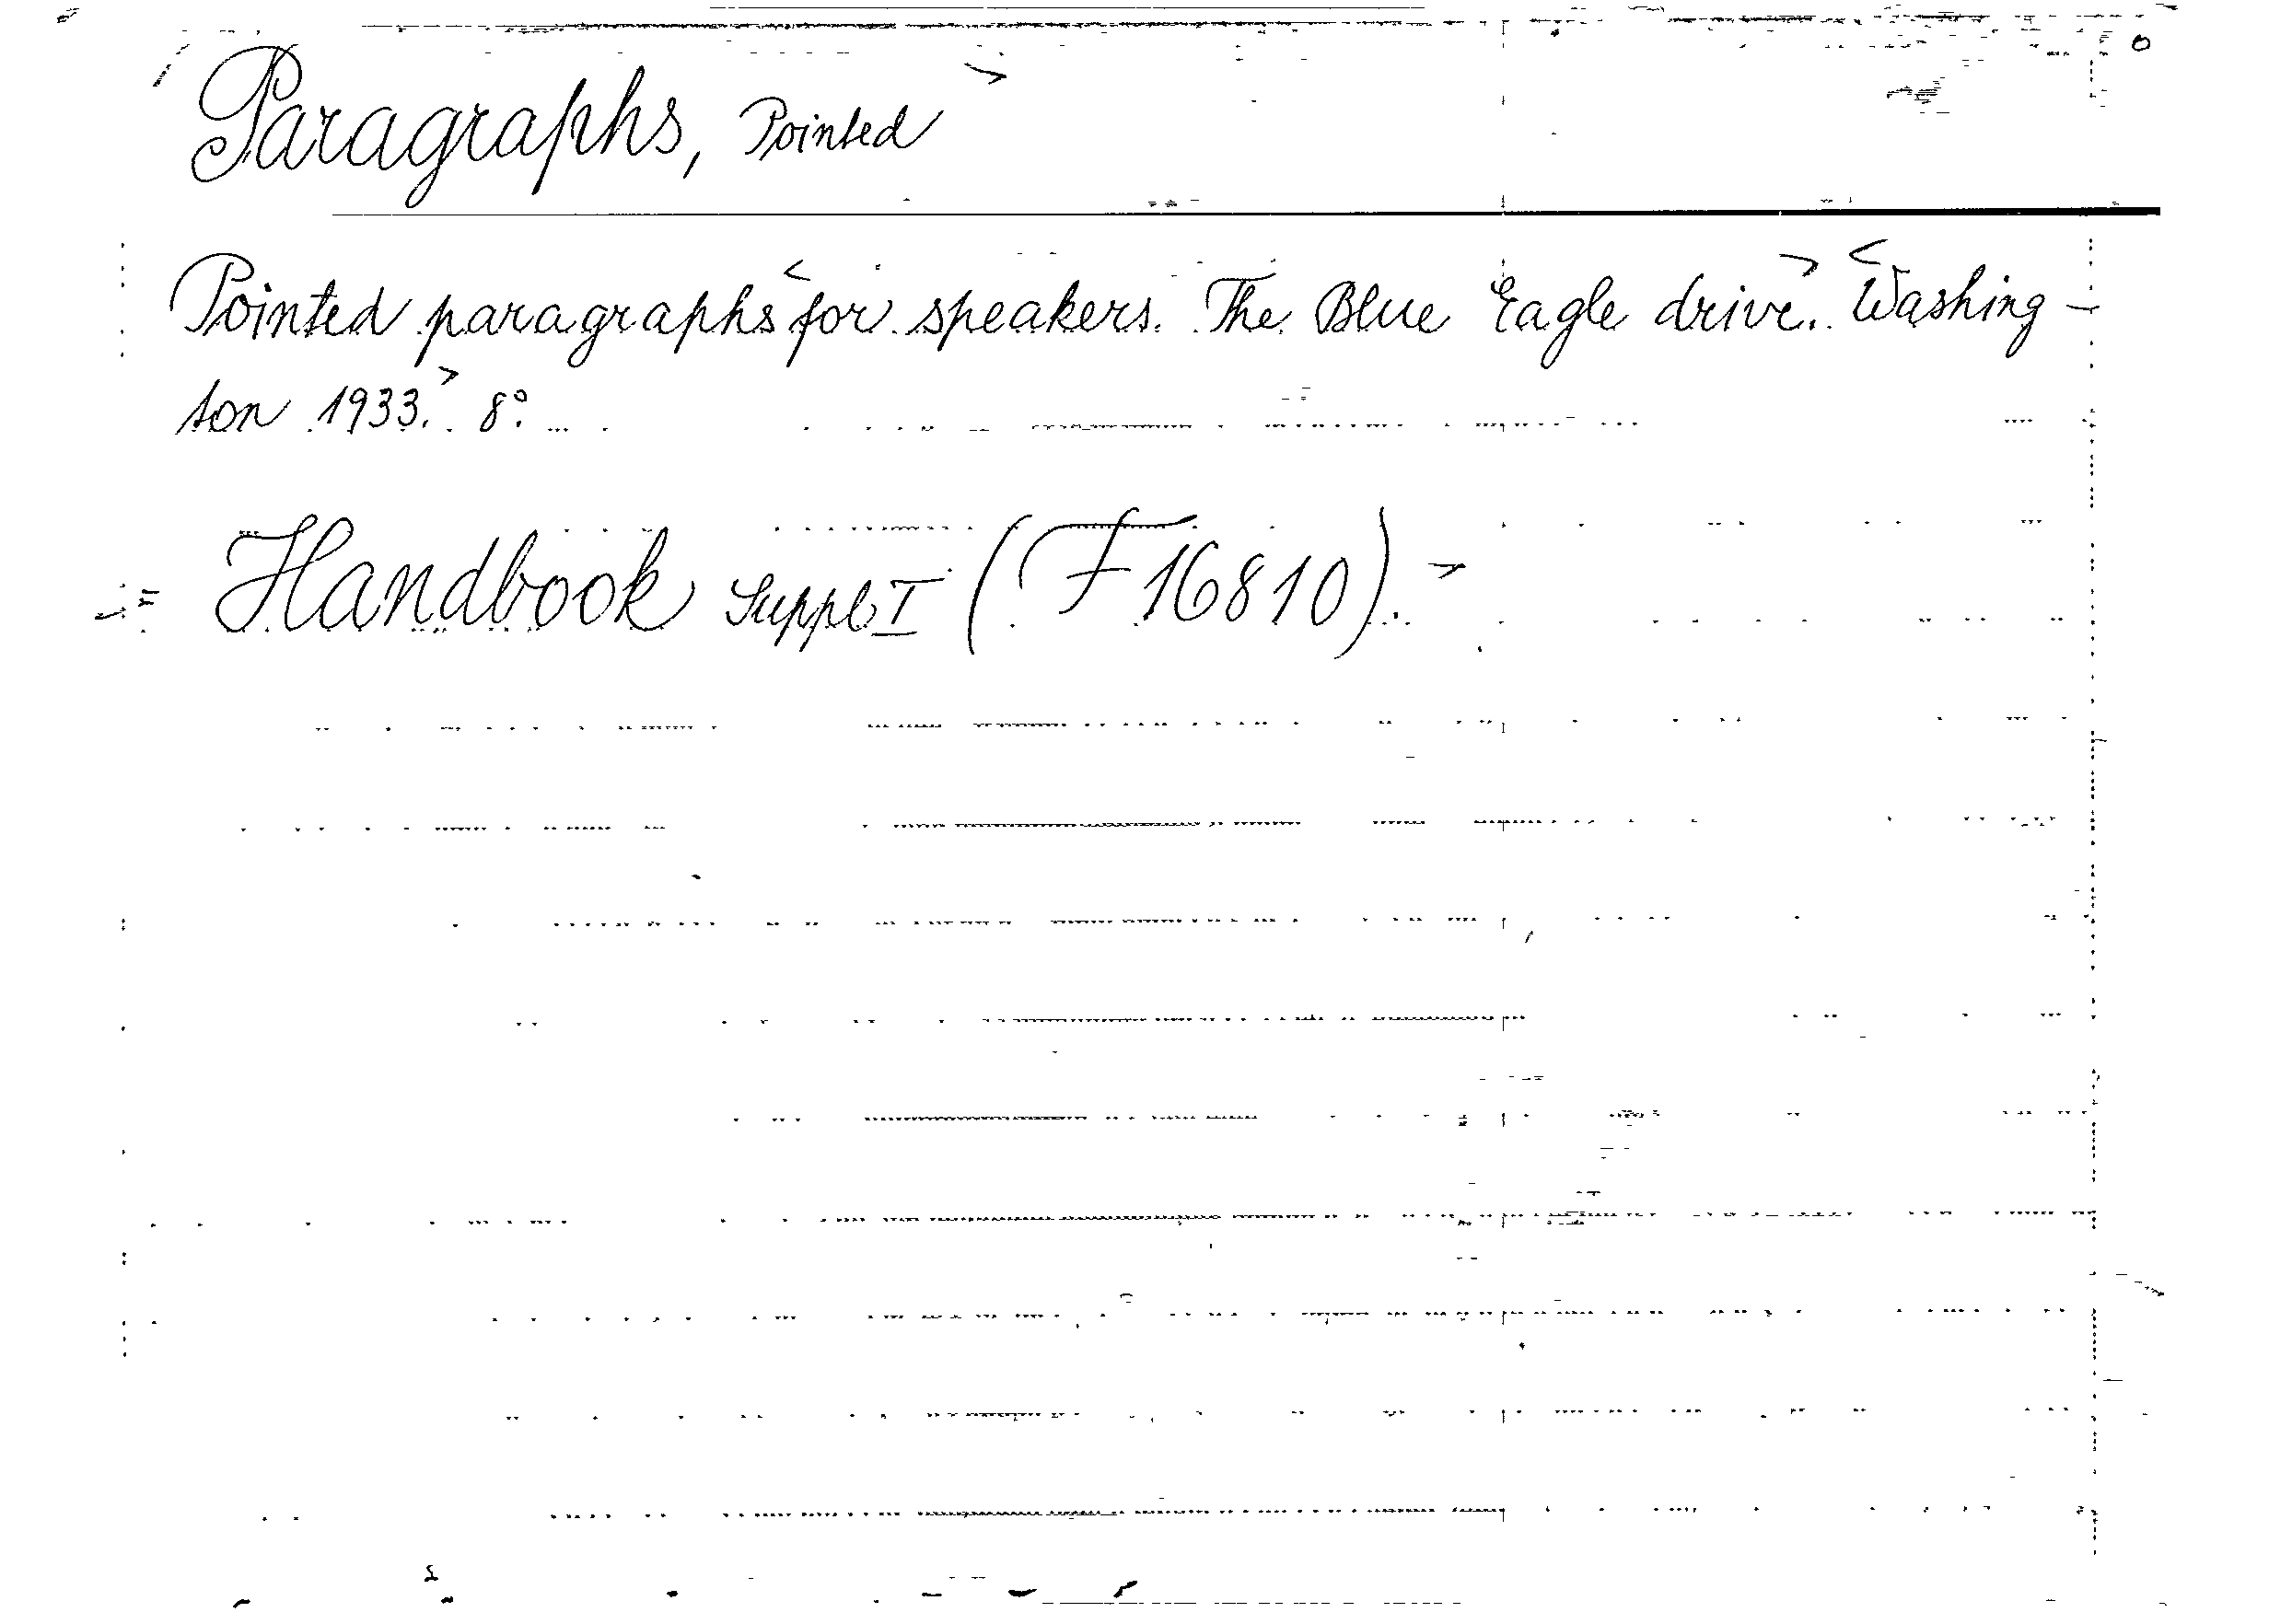 Paragraphs, Pointed >
Pointed paragraphs < for speakers. The Blue Eagle drive. > < Washing-
ton 1933. > 8°.
= Handbook Suppl I (F 16810). >